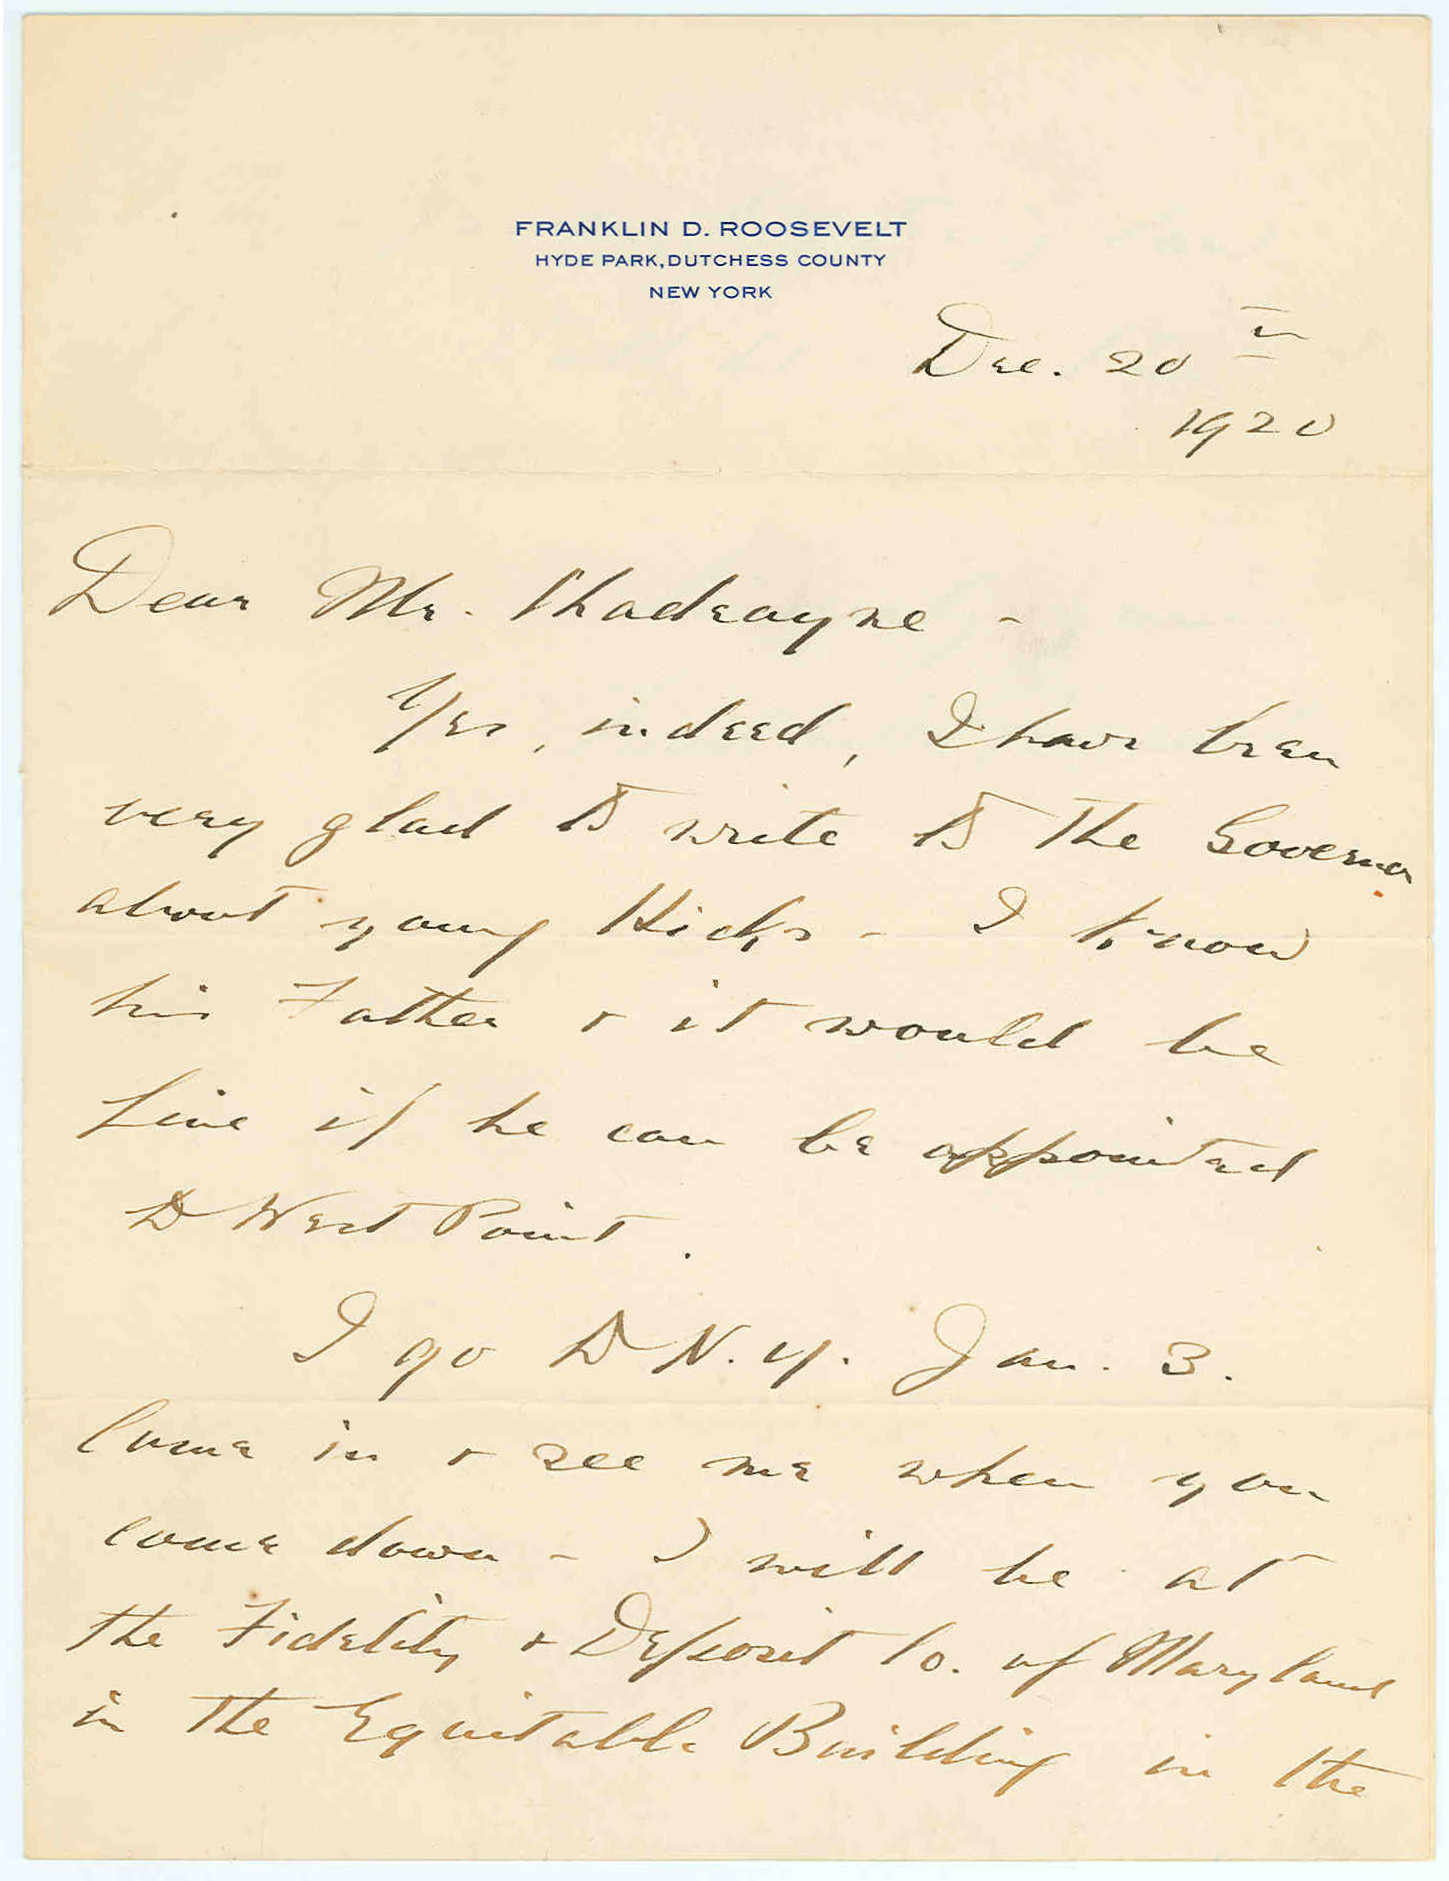 FRANKLIN D. ROOSEVELT
HYDE PARK, DUTCHESS COUNTY
NEW YORK
Dec. 20th
1920
Dear Mr. Shadrayne -
Yes, indeed, I have been
very glad to write to the Governor
about young Hicks - I know
his Father & it would be
fine if he can be appointed
to West Point.
I go to N.Y. Jan. 3.
Come in & see me when you
come down - I will be at
the Fidelity & Deposit Co. of Maryland
in the Equitable Building in the